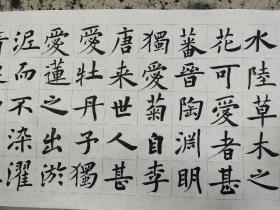 水陸草木之
花可愛者甚
蕃晉陶淵明
獨愛菊自李
唐来世人甚
愛牡丹予獨
愛蓮之出淤
泥而不染濯